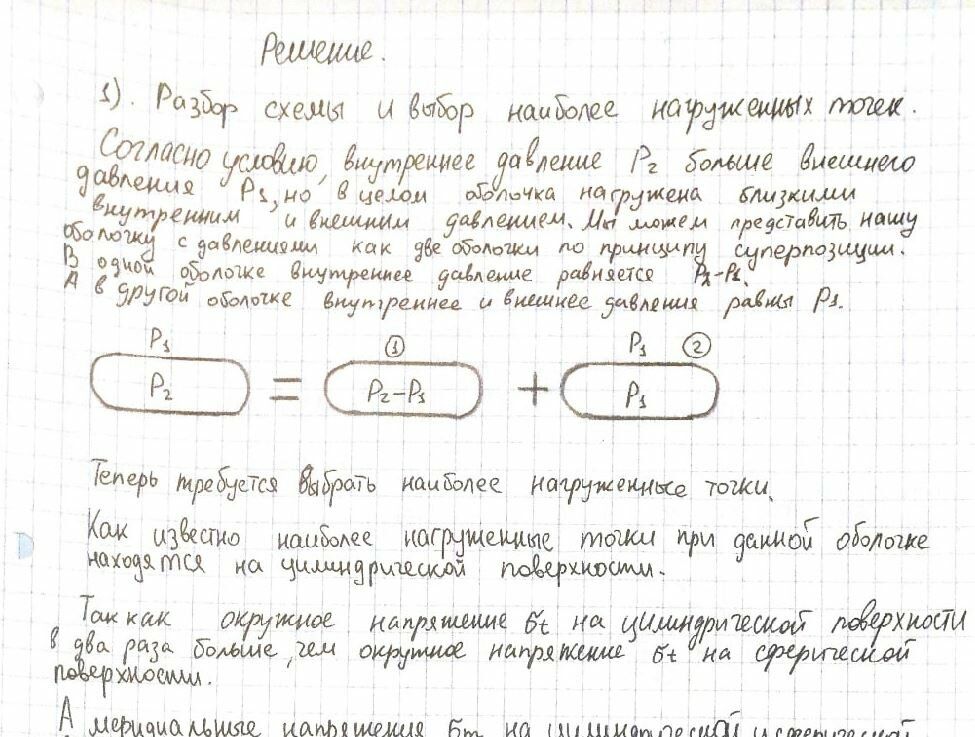 Решение.
1). Разбор схемы и выбор наиболее нагруженных точек.
Согласно условию, внутреннее давление P2 больше внешнего
давления P1, но в целом оболочка нагружена близкими
внутренним и внешним давлением. Мы можем представить нашу
оболочку с давлениями как две оболочки по принципу суперпозиции.
В одной оболочке внутреннее давление равняется P2-P1.
А в другой оболочке внутреннее и внешнее давления равны P1.
P1 ① P1 ②
P2 = P2-P1 + P1
Теперь требуется выбрать наиболее нагруженные точки.
Как известно наиболее нагруженные точки при данной оболочке
находятся на цилиндрической поверхности.
Так как окружное напряжение σt на цилиндрической поверхности
в два раза больше, чем окружное напряжение σt на сферической
поверхности.
А меридиальные напряжения σm на цилиндрической и сферической